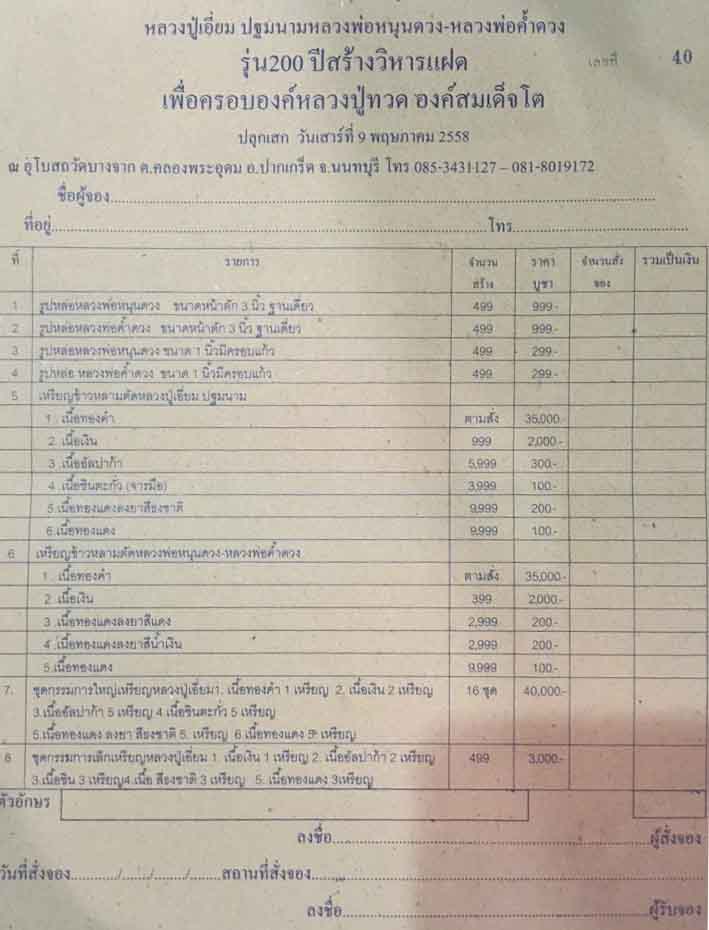 หลวงปู่เอี่ยม ปฐมนามหลวงพ่อหนุนดวง-หลวงพ่อค้ำดวง
รุ่น200 ปีสร้างวิหารแฝด เลขที่ 40
เพื่อครอบองค์หลวงปู่ทวด องค์สมเด็จโต
ปลุกเสก วันเสาร์ที่ 9 พฤษภาคม 2558
ณ อุโบสถวัดบางจาก ต.คลองพระอุดม อ.ปากเกร็ด จ.นนทบุรี โทร 085-3431127 – 081-8019172
ชื่อผู้จอง
ที่อยู่ โทร
ที่ รายการ จำนวนสร้าง ราคาบูชา จำนวนสั่งจอง รวมเป็นเงิน
1 รูปหล่อหลวงพ่อหนุนดวง ขนาดหน้าตัก 3 นิ้ว ฐานเดี่ยว 499 999.-
2 รูปหล่อหลวงพ่อค้ำดวง ขนาดหน้าตัก 3 นิ้ว ฐานเดี่ยว 499 999.-
3 รูปหล่อหลวงพ่อหนุนดวง ขนาด 1 นิ้วมีครอบแก้ว 499 299.-
4 รูปหล่อ หลวงพ่อค้ำดวง ขนาด 1 นิ้วมีครอบแก้ว 499 299.-
5 เหรียญข้าวหลามตัดหลวงปู่เอี่ยม ปฐมนาม
1. เนื้อทองคำ ตามสั่ง 35,000.-
2. เนื้อเงิน 999 2,000.-
3. เนื้ออัลปาก้า 5,999 300.-
4. เนื้อชินตะกั่ว (จารมือ) 3,999 100.-
5. เนื้อทองแดงลงยาสีธงชาติ 9,999 200.-
6. เนื้อทองแดง 9,999 100.-
6 เหรียญข้าวหลามตัดหลวงพ่อหนุนดวง-หลวงพ่อค้ำดวง
1. เนื้อทองคำ ตามสั่ง 35,000.-
2. เนื้อเงิน 399 2,000.-
3. เนื้อทองแดงลงยาสีแดง 2,999 200.-
4. เนื้อทองแดงลงยาสีน้ำเงิน 2,999 200.-
5. เนื้อทองแดง 9,999 100.-
7. ชุดกรรมการใหญ่เหรียญหลวงปู่เอี่ยม1. เนื้อทองคำ 1 เหรียญ 2. เนื้อเงิน 2 เหรียญ 16 ชุด 40,000.-
3.เนื้ออัลปาก้า 5 เหรียญ 4 เนื้อชินตะกั่ว 5 เหรียญ
5.เนื้อทองแดง ลงยา สีธงชาติ 5. เหรียญ 6 เนื้อทองแดง 5 เหรียญ
8 ชุดกรรมการเล็กเหรียญหลวงปู่เอี่ยม 1. เนื้อเงิน 1 เหรียญ 2. เนื้ออัลปาก้า 2 เหรียญ 499 3,000.-
3.เนื้อชิน 3 เหรียญ4.เนื้อ สีธงชาติ 3 เหรียญ 5. เนื้อทองแดง 3เหรียญ
ตัวอักษร
ลงชื่อ ผู้สั่งจอง
วันที่สั่งจอง / / / สถานที่สั่งจอง
ลงชื่อ ผู้รับจอง